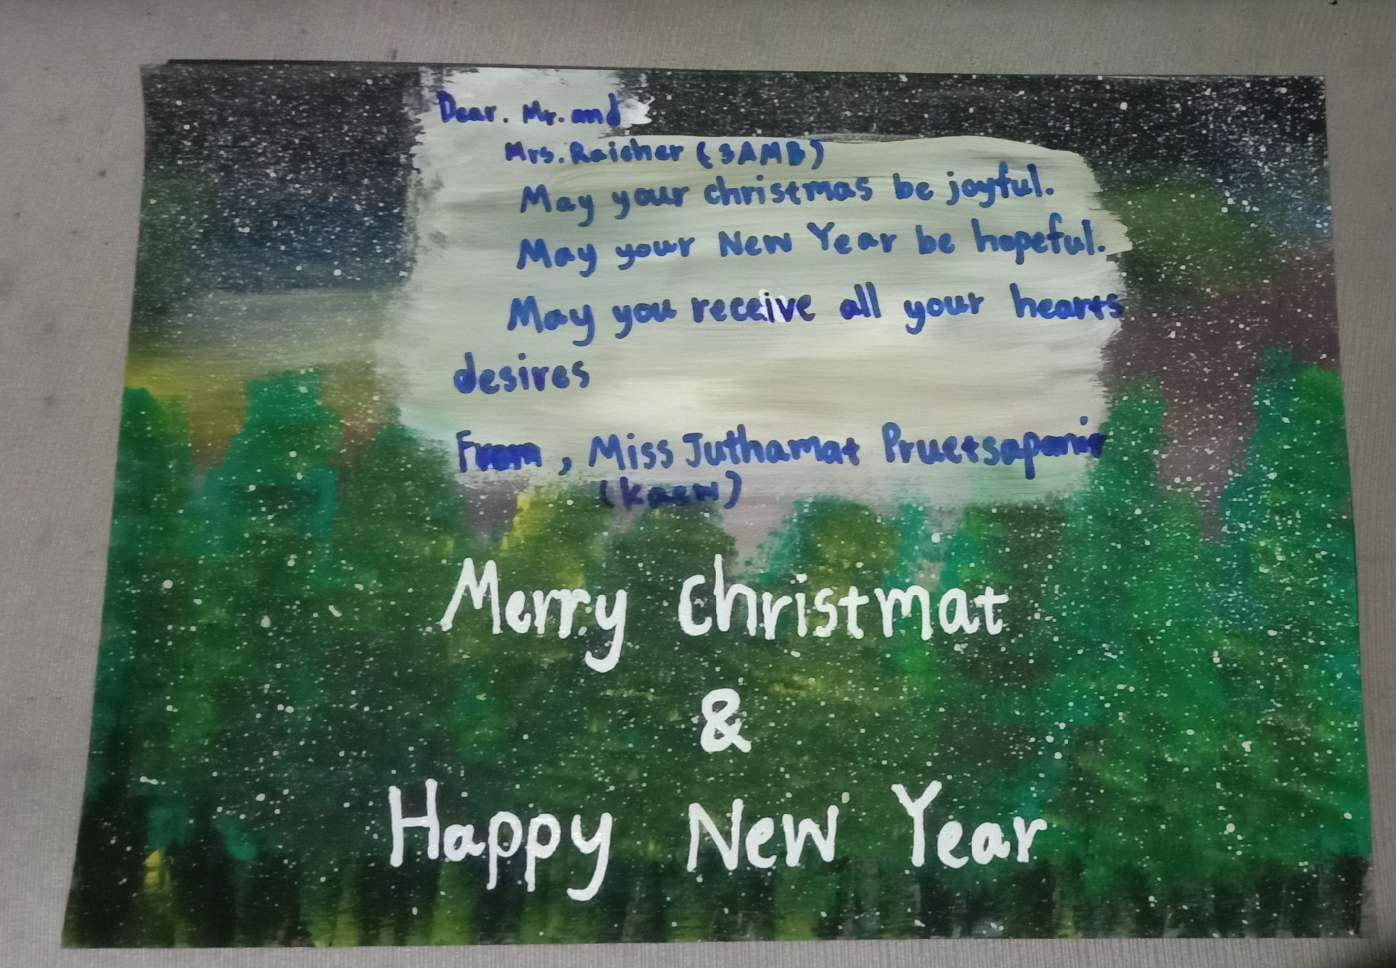 Dear. Mr. and
Mrs. Raicher (SAMB)
May your christmas be joyful.
May your New Year be hopeful.
May you receive all your hearts
desires
From, Miss Juthamat Pruetsapanit
(kaew)
Merry christmat
&
Happy New Year